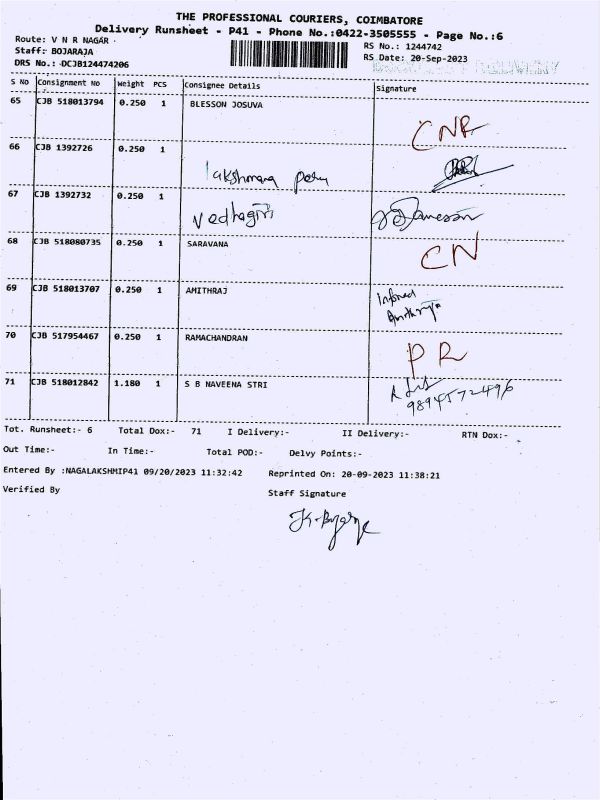 THE PROFESSIONAL COURIERS, COIMBATORE
Delivery Runsheet - P41 - Phone No.:0422-3505555 - Page No.:6
Route: V N R NAGAR
RS No.: 1244742
Staff: BOJARAJA
RS Date: 20-Sep-2023
DRS No.: DCJB124474206
S No Consignment No Weight PCS Consignee Details Signature
65 CJB 518013794 0.250 1 BLESSON JOSUVA
CNR
66 CJB 1392726 0.250 1
lakshmana
67 CJB 1392732 0.250 1
Vedhagiri
68 CJB 518080735 0.250 1 SARAVANA
CN
69 CJB 518013707 0.250 1 AMITHRAJ
70 CJB 517954467 0.250 1 RAMACHANDRAN
PR
71 CJB 518012842 1.180 1 S B NAVEENA STRI
9894572496
Tot. Runsheet:- 6 Total Dox:- 71 I Delivery:- II Delivery:- RTN Dox:-
Out Time:- In Time:- Total POD:- Delvy Points:-
Entered By :NAGALAKSHMIP41 09/20/2023 11:32:42 Reprinted On: 20-09-2023 11:38:21
Verified By Staff Signature